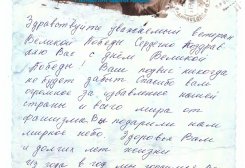 Здравствуйте уважаемый ветеран
Великой Победы Сердечно Поздрав-
ляю Вас с днём Великой
Победы! Ваш подвиг никогда
не будет забыт спасибо вам
огромное за избавление нашей
страны и всего мира от
фашизма. Вы подарили нам
мирное небо. Здоровья Вам
и долгих лет жизни
Из года в год мы